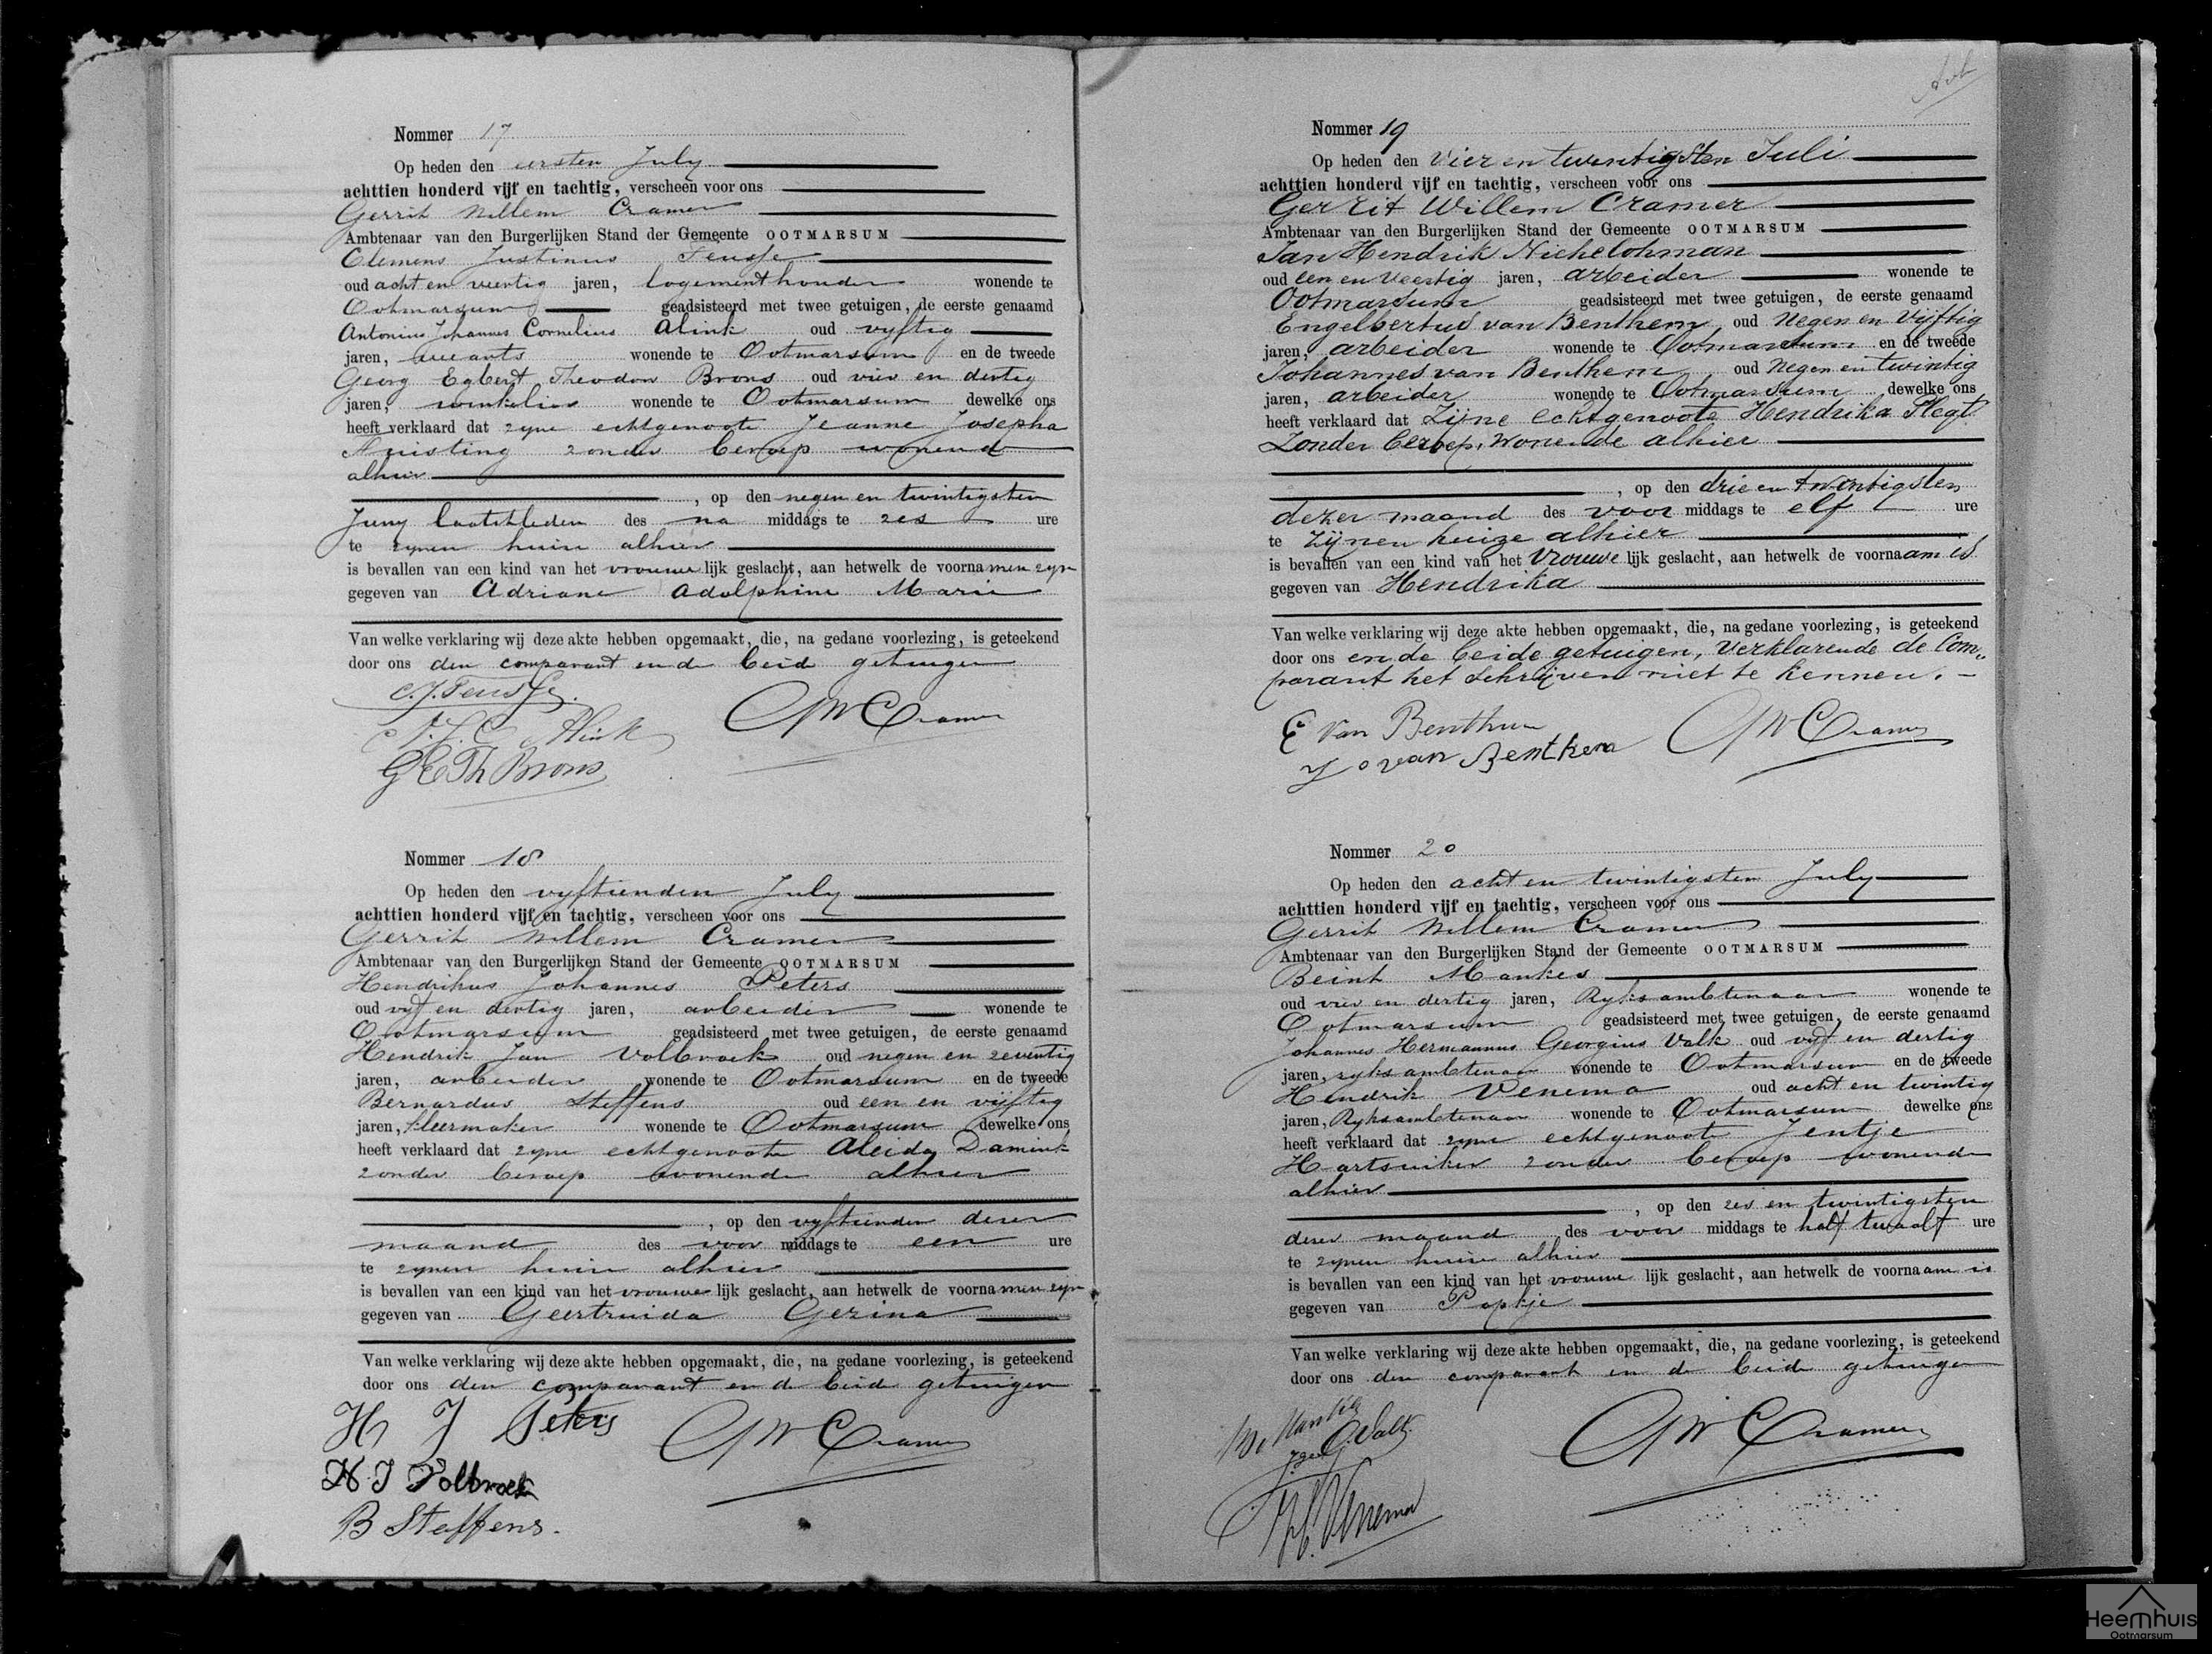 Nommer 17
Op heden den eersten July
achttien honderd vijf en tachtig, verscheen voor ons
Gerrit Willem Cramer
Ambtenaar van den Burgerlijken Stand der Gemeente OOTMARSUM
Clemens Justinus
oud acht en veertig jaren, logementhouder wonende te
Ootmarsum geadsisteerd met twee getuigen, de eerste genaamd
Antonius Johannes Cornelius Alink oud vyftig
jaren, wonende te Ootmarsum en de tweede
Georg Egbert Theodoor Brons oud vier en dertig
jaren, winkelier wonende te Ootmarsum dewelke ons
heeft verklaard dat zyne echtgenoote Jeanne Josepha
zonder beroep wonend
alhier
, op den negen en twintigsten
Juny laatstleden des na middags te zes ure
te zynen huize alhier
is bevallen van een kind van het vrouwelijk geslacht, aan hetwelk de voornamen zyn
gegeven van Adriane Adolphine Marie
Van welke verklaring wij deze akte hebben opgemaakt, die, na gedane voorlezing, is geteekend
door ons den comparant en de beide getuigen
A.J.C. Alink
GWCramer
GEThBrons
Nommer 18
Op heden den vyftienden July
achttien honderd vijf en tachtig, verscheen voor ons
Gerrit Willem Cramer
Ambtenaar van den Burgerlijken Stand der Gemeente OOTMARSUM
Hendrikus Johannes Peters
oud vyf en dertig jaren, arbeider wonende te
Ootmarsum geadsisteerd met twee getuigen, de eerste genaamd
Hendrik Jan Volbroek oud negen en zeventig
jaren, arbeider wonende te Ootmarsum en de tweede
Bernardus Steffens oud een en vijftig
jaren, kleermaker wonende te Ootmarsum dewelke ons
heeft verklaard dat zyne echtgenoote Aleida Damink
zonder beroep wonende alhier
, op den vyftienden dezer
maand des voor middags te een ure
te zynen huize alhier
is bevallen van een kind van het vrouwelijk geslacht, aan hetwelk de voornamen zyn
gegeven van Geertruida Gezina
Van welke verklaring wij deze akte hebben opgemaakt, die, na gedane voorlezing, is geteekend
door ons den comparant en de beide getuigen
H J Peters
GWCramer
H.J Volbroek
B Steffens.
Nommer 19
Op heden den Vier en twentigsten Juli
achttien honderd vijf en tachtig, verscheen voor ons
Gerrit Willem Cramer
Ambtenaar van den Burgerlijken Stand der Gemeente OOTMARSUM
Jan Hendrik Nichelohman
oud een en Veertig jaren, arbeider wonende te
Ootmarsum geadsisteerd met twee getuigen, de eerste genaamd
Engelbertus van Benthem oud Negen en Vijftig
jaren, arbeider wonende te Ootmarsum en de tweede
Johannes van Benthem oud Negen en twintig
jaren, arbeider wonende te Ootmarsum dewelke ons
heeft verklaard dat Zijne echtgenoote Hendrika Slegt
Zonder beroep, Wonende alhier
, op den drie en twintigsten
dezer maand des voor middags te elf ure
te Zijnen huize alhier
is bevallen van een kind van het Vrouwelijk geslacht, aan hetwelk de voornaam is
gegeven van Hendrika
Van welke verklaring wij deze akte hebben opgemaakt, die, na gedane voorlezing, is geteekend
door ons en de beide getuigen, Verklarende de Com„
parant het Schrijven niet te kennen.
E van Benthem
GWCramer
J o van Benthem
Nommer 20
Op heden den acht en twintigsten July
achttien honderd vijf en tachtig, verscheen voor ons
Gerrit Willem Cramer
Ambtenaar van den Burgerlijken Stand der Gemeente OOTMARSUM
Beint Mankes
oud vier en dertig jaren, Ryksambtenaar wonende te
Ootmarsum geadsisteerd met twee getuigen, de eerste genaamd
Johannes Hermannus Georgius Valk oud vyf en dertig
jaren, ryksambtenaar wonende te Ootmarsum en de tweede
Hendrik Venema oud acht en twintig
jaren, Ryksambtenaar wonende te Ootmarsum dewelke ons
heeft verklaard dat zyne echtgenoote Jentje
Hartsuiker zonder beroep wonende
alhier
, op den zes en twintigsten
dezer maand des voor middags te half twaalf ure
te zynen huize alhier
is bevallen van een kind van het vrouwelijk geslacht, aan hetwelk de voornaam is
gegeven van Popkje
Van welke verklaring wij deze akte hebben opgemaakt, die, na gedane voorlezing, is geteekend
door ons den comparant en de beide getuigen
B. Mankes
GWCramer
H. Venema
Heemhuis
Ootmarsum